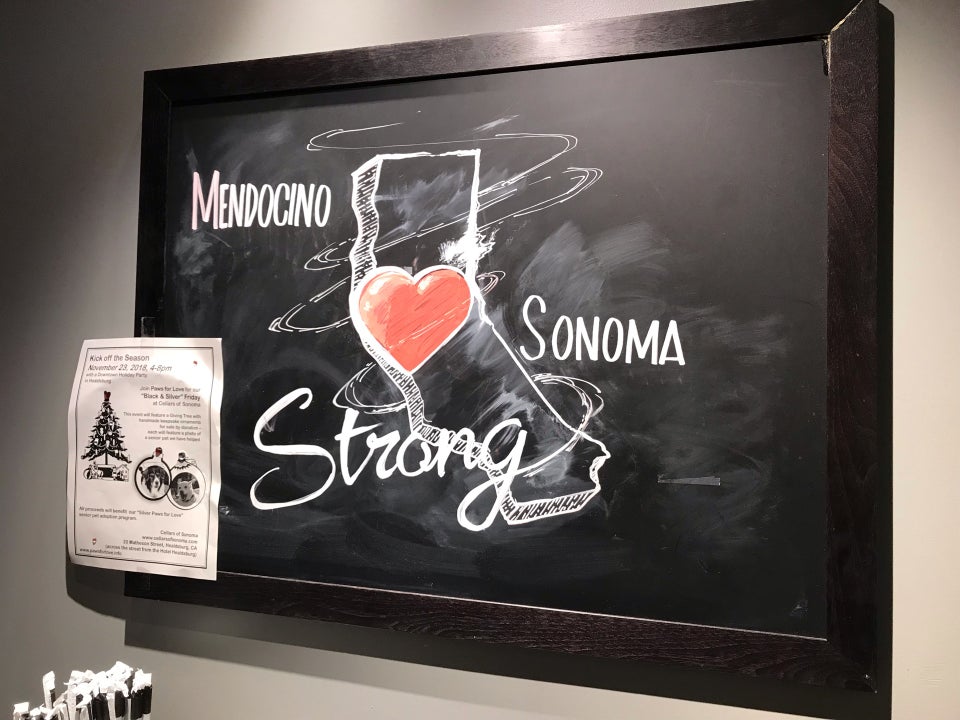 MENDOCINO
SONOMA
Strong
Kick off the Season
November 23, 2018, 4-8pm
with a Downtown Holiday Party
in Healdsburg.
Join Paws for Love for our
"Black & Silver" Friday
at Cellars of Sonoma
This event will feature a Giving Tree with
handmade keepsake ornaments
for sale by donation –
each will feature a photo of
a senior pet we have helped
All proceeds will benefit our "Silver Paws for Love"
senior pet adoption program.
Cellars of Sonoma
www.cellarsofsonoma.com
20 Matheson Street, Healdsburg, CA
(across the street from the Hotel Healdsburg)
www.pawsforlove.info